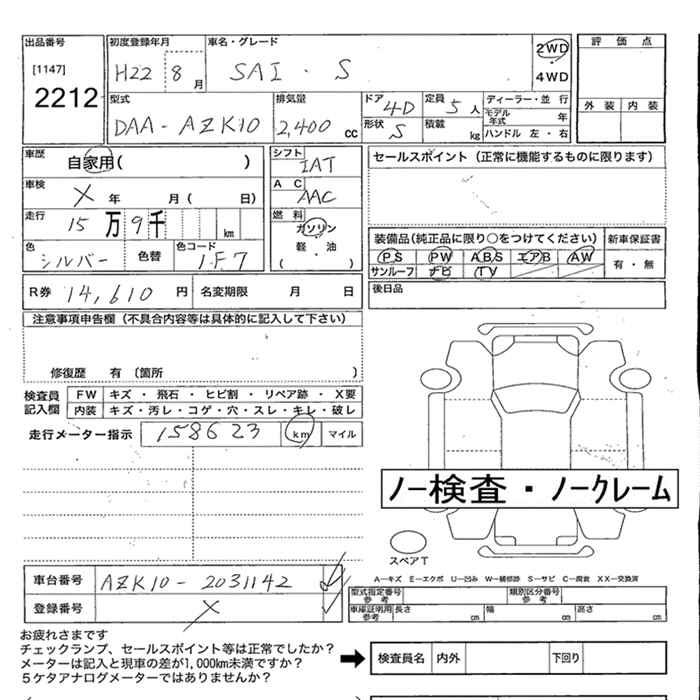 出品番号
[1147]
2212
初度登録年月
H22 8月
車名・グレード
SAI・S
2WD
4WD
評価点
外装 内装
型式
DAA-AZK10
排気量
2,400 cc
ドア
4D
形状
S
定員
5人
積載
kg
ディーラー・並行
モデル年式 年
ハンドル 左・右
車歴
自家用( )
車検
X 年 月( 日)
走行
15万9千 km
色
シルバー
色替
色コード
1F7
シフト
IAT
AC
AAC
燃料
ガソリン
軽・油
( )
セールスポイント(正常に機能するものに限ります)
装備品(純正品に限り○をつけてください)
PS PW ABS エアB AW
サンルーフ ナビ TV
新車保証書
有・無
R券 14,610 円
名変期限 月 日
後日品
注意事項申告欄(不具合内容等は具体的に記入して下さい)
修復歴 有(箇所 )
検査員記入欄
FW キズ・飛石・ヒビ割・リペア跡・X要
内装 キズ・汚レ・コゲ・穴・スレ・キレ・破レ
走行メーター指示 158623 km マイル
ノー検査・ノークレーム
スペアT
A-キズ E-エクボ U-凹み W-補修跡 S-サビ C-腐食 XX-交換済
車台番号 AZK10-2031142
登録番号 X
型式指定番号
参考
類別区分番号
参考
車庫証明用
参考
長さ cm 幅 cm 高さ cm
お疲れさまです
チェックランプ、セールスポイント等は正常でしたか?
メーターは記入と現車の差が1,000km未満ですか?
5ケタアナログメーターではありませんか?
検査員名 内外 下回り